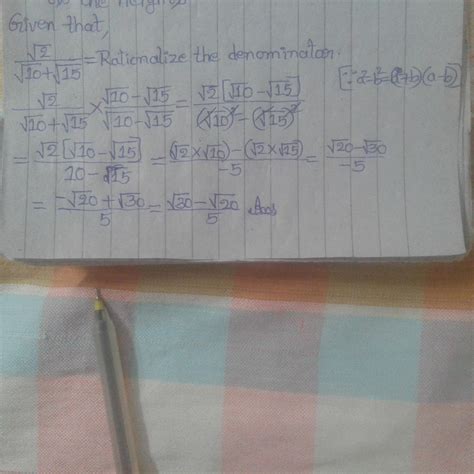 the heights
Given that,
√2/(√10+√15) = Rationalize the denominator.
√2/(√10+√15) × (√10-√15)/(√10-√15) = √2[√10-√15]/((√10)²-(√15)²) [∵ a²-b²=(a+b)(a-b)]
= √2[√10-√15]/(10-15) = ((√2×√10)-(√2×√15))/-5 = (√20-√30)/-5
= (-√20+√30)/5 = (√30-√20)/5 Ans